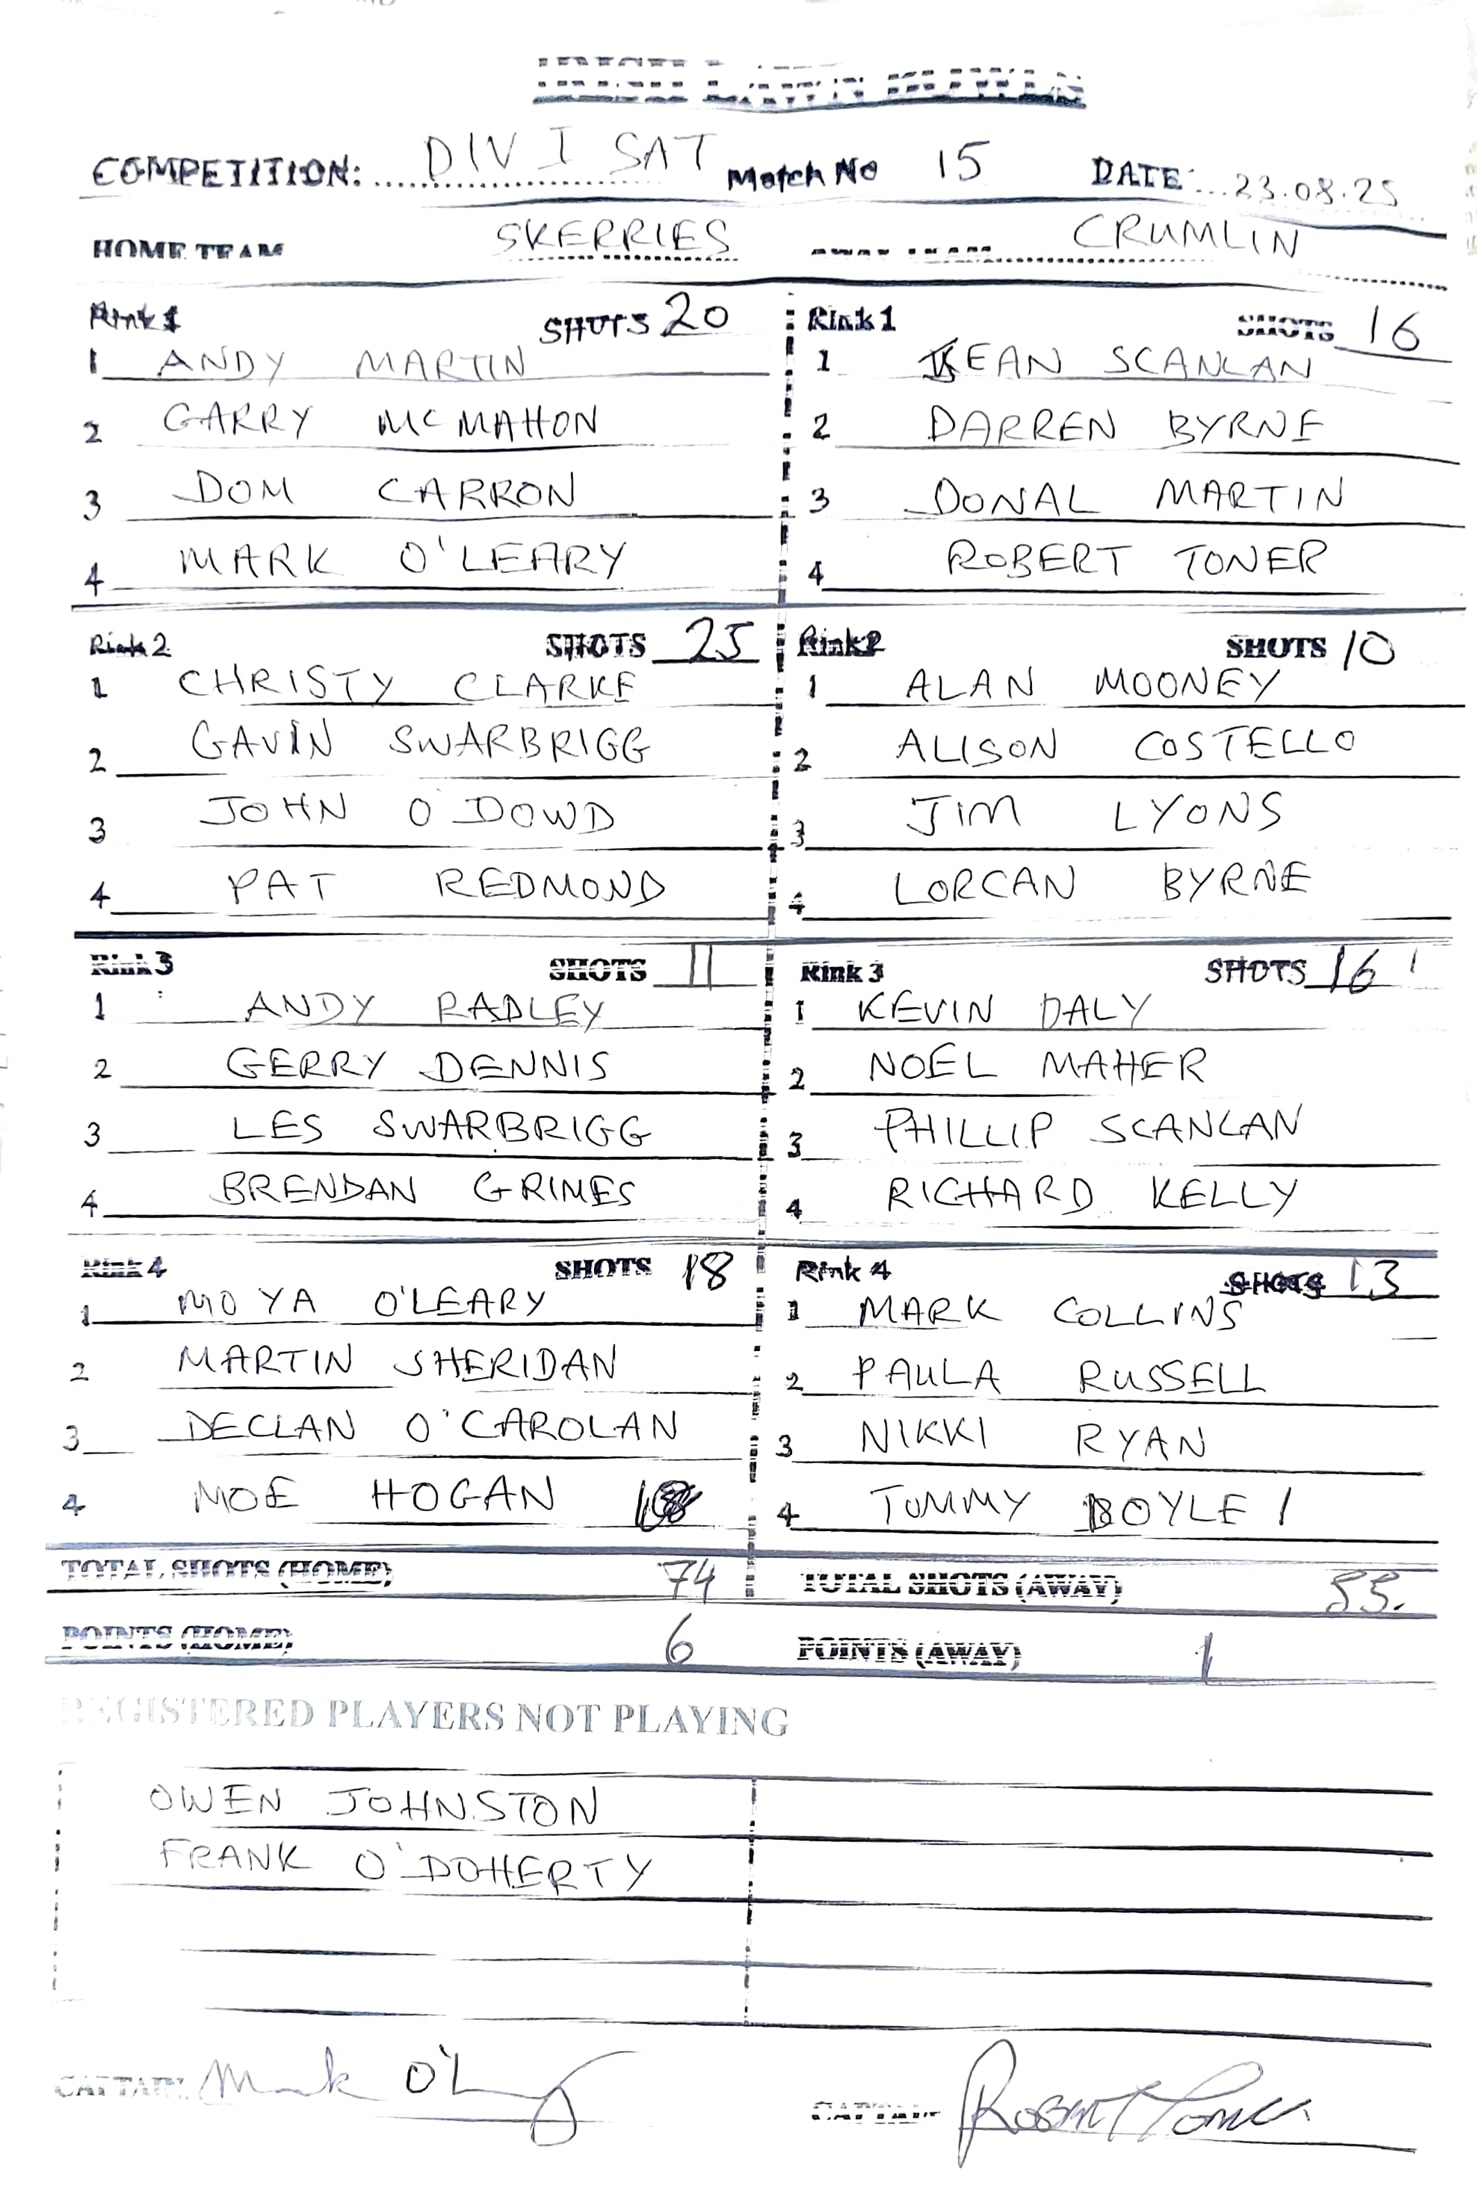 IRISH LAWN BOWLS
COMPETITION: DIV I SAT Match No 15 DATE: 23.08.25
HOME TEAM SKERRIES AWAY TEAM CRUMLIN
Rink 1 SHOTS 20
1 ANDY MARTIN
2 GARRY MCMAHON
3 DOM CARRON
4 MARK O'LEARY
Rink 1 SHOTS 16
1 KEAN SCANLAN
2 DARREN BYRNE
3 DONAL MARTIN
4 ROBERT TONER
Rink 2 SHOTS 25
1 CHRISTY CLARKE
2 GAVIN SWARBRIGG
3 JOHN O'DOWD
4 PAT REDMOND
Rink 2 SHOTS 10
1 ALAN MOONEY
2 ALISON COSTELLO
3 JIM LYONS
4 LORCAN BYRNE
Rink 3 SHOTS 11
1 ANDY RADLEY
2 GERRY DENNIS
3 LES SWARBRIGG
4 BRENDAN GRIMES
Rink 3 SHOTS 16
1 KEVIN DALY
2 NOEL MAHER
3 PHILLIP SCANLAN
4 RICHARD KELLY
Rink 4 SHOTS 18
1 MOYA O'LEARY
2 MARTIN SHERIDAN
3 DECLAN O'CAROLAN
4 MOE HOGAN
Rink 4 SHOTS 13
1 MARK COLLINS
2 PAULA RUSSELL
3 NIKKI RYAN
4 TOMMY BOYLE
TOTAL SHOTS (HOME) 74 TOTAL SHOTS (AWAY) 55.
POINTS (HOME) 6 POINTS (AWAY) 1
REGISTERED PLAYERS NOT PLAYING
OWEN JOHNSTON
FRANK O'DOHERTY
CAPTAIN Mark O'L
CAPTAIN ROBERT Toner